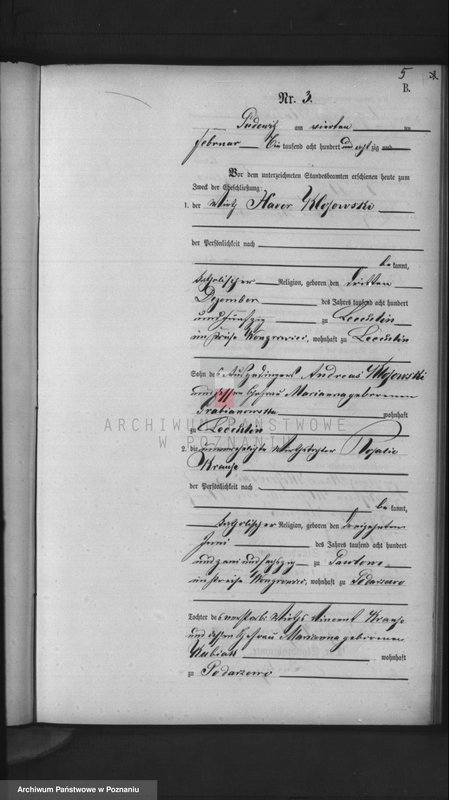 5
B.
Nr. 3.
Pudewitz am vierten ten
Februar Ein tausend acht hundert und acht zig und
Vor dem unterzeichneten Standesbeamten erschienen heute zum
Zweck der Eheschließung:
1. der Wirth Xaver Klosowski
der Persönlichkeit nach
be kannt,
katholischer Religion, geboren den dritten
Dezember des Jahres tausend acht hundert
und fünfzig zu Lechlin
im Kreise Wongrowiec, wohnhaft zu Lechlin
Sohn des Ausgedingers Andreas Klosowski
und dessen Ehefrau Marianna geborenen
wohnhaft
zu Lechlin
ARCHIWUM PAŃSTWOWE
W POZNANIU
2. die unverehelichte Wirthstochter Rosalie
Krause
der Persönlichkeit nach
be kannt,
katholischer Religion, geboren den dreizehnten
Juni des Jahres tausend acht hundert
und zwei und sechszig zu
im Kreise Wongrowiec, wohnhaft zu Podarzewo
Tochter des verstorb. Wirths Vincent Krause
und dessen Ehefrau Marianna geborenen
Kubiak wohnhaft
zu Podarzewo
Archiwum Państwowe w Poznaniu